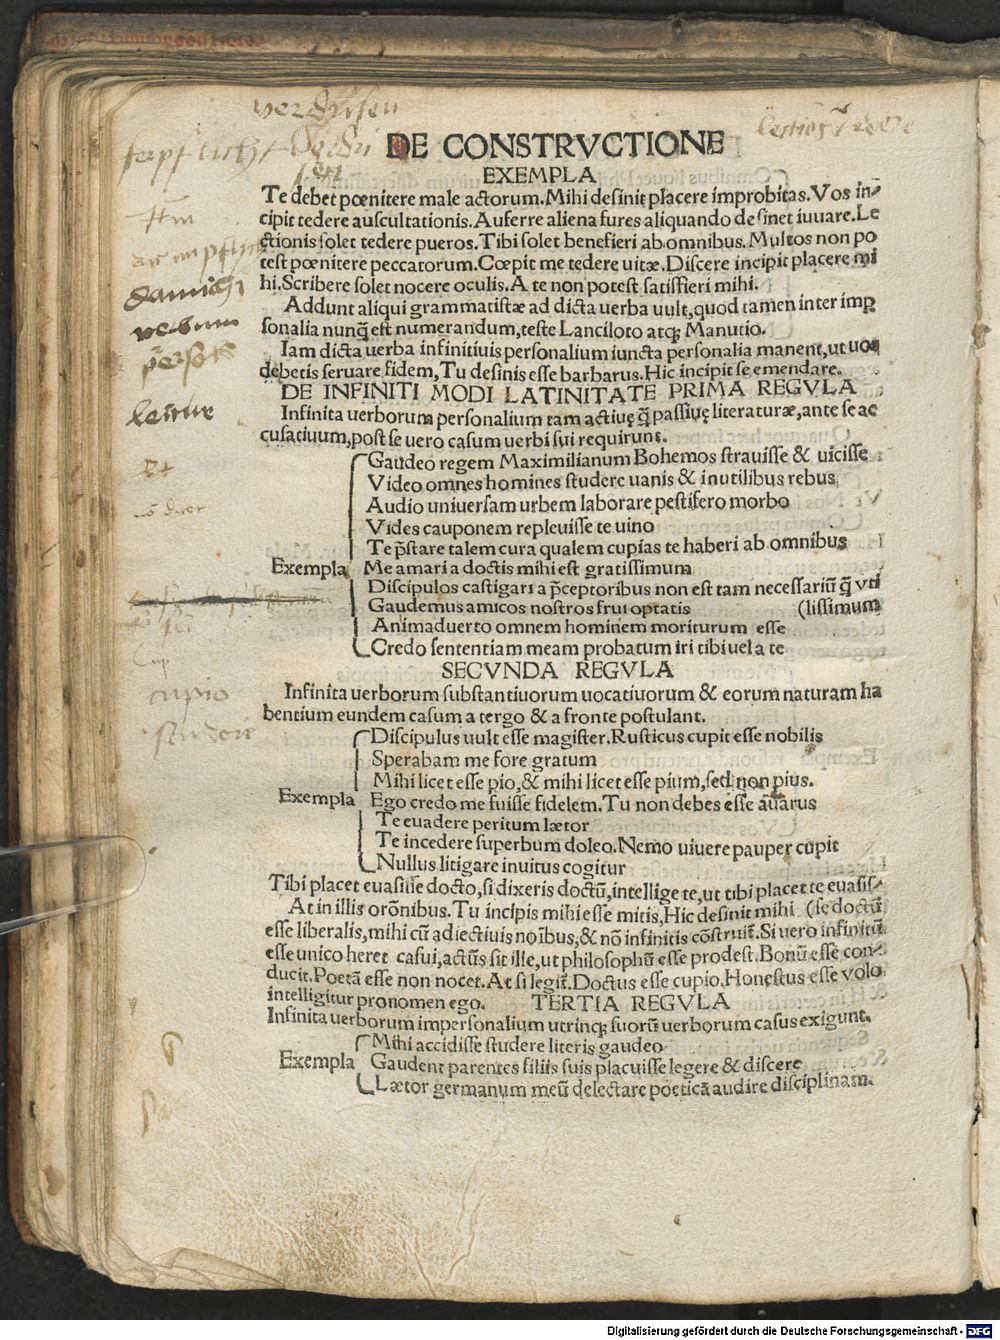 DE CONSTRVCTIONE
EXEMPLA
Te debet pœnitere male actorum. Mihi desinit placere improbitas. Vos in⸗
cipit tedere auscultationis. Auferre aliena fures aliquando desinet iuuare. Le
ctionis solet tedere pueros. Tibi solet benefieri ab omnibus. Multos non po
test pœnitere peccatorum. Cœpit me tedere uitæ. Discere incipit placere mi
hi. Scribere solet nocere oculis. A te non potest satisfieri mihi.
Addunt aliqui grammatistæ ad dicta verba uult, quod tamen inter imp̲
sonalia nunq̃ est numerandum, teste Lanciloto atq; Manutio.
Iam dicta uerba infinitiuis personalium iuncta personalia manent, ut uos
debetis seruare fidem, Tu desinis esse barbarus. Hic incipit se emendare.
DE INFINITI MODI LATINITATE PRIMA REGVLA
Infinita uerborum personalium tam actiuę q̃ passiuę literaturæ, ante se ac
cusatiuum, post se uero casum uerbi sui requirunt.
Gaudeo regem Maximilianum Bohemos strauisse & uicisse
Video omnes homines studere uanis & inutilibus rebus
Audio uniuersam urbem laborare pestifero morbo
Vides cauponem repleuisse te uino
Te p̃stare talem cura qualem cupias te haberi ab omnibus
Exempla Me amari a doctis mihi est gratissimum
Discipulos castigari a p̃ceptoribus non est tam necessariũ q̃ vti
Gaudemus amicos nostros frui optatis (lissimum
Animaduerto omnem hominem moriturum esse
Credo sententiam meam probatum iri tibi uel a te
SECVNDA REGVLA
Infinita uerborum substantiuorum uocatiuorum & eorum naturam ha
bentium eundem casum a tergo & a fronte postulant.
Discipulus uult esse magister. Rusticus cupit esse nobilis
Sperabam me fore gratum
Mihi licet esse pio, & mihi licet esse pium, sed non pius.
Exempla Ego credo me fuisse fidelem. Tu non debes esse auarus
Te euadere peritum lætor
Te incedere superbum doleo. Nemo uiuere pauper cupit
Nullus litigare inuitus cogitur
Tibi placet euasisse docto, si dixeris doctũ, intellige te, ut tibi placet te euasis⸗
At in illis orõnibus. Tu incipis mihi esse mitis, Hic desinit mihi (se doctũ
esse liberalis, mihi cũ adiectiuis noĩbus, & nõ infinitis cõstruit̃. Si uero infinitũ
esse unico heret casui, actũs sit ille, ut philosophũ esse prodest. Bonũ esse con⸗
ducit. Poetã esse non nocet. At si legit̃. Doctus esse cupio. Honestus esse volo
intelligitur pronomen ego. TERTIA REGVLA
Infinita uerborum impersonalium utrinq; suorũ uerborum casus exigunt.
Mihi accidisse studere literis gaudeo
Exempla Gaudent parentes filiis suis placuisse legere & discere
Lætor germanum meũ delectare poeticã audire disciplinam.
cupio
Digitalisierung gefördert durch die Deutsche Forschungsgemeinschaft - DFG